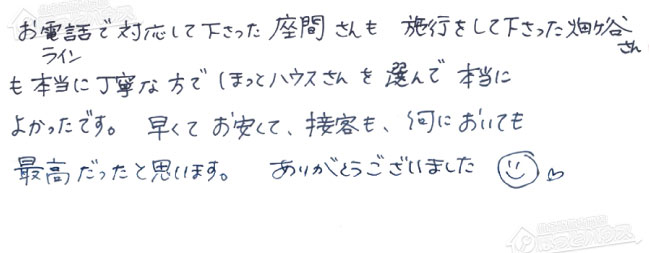 お電話で対応して下さった座間さんも 施行をして下さった畑ヶ谷さん
ライン
も本当に丁寧な方でほっとハウスさんを選んで本当に
よかったです。 早くてお安くて、接客も、何においても
最高だったと思います。 ありがとうございました